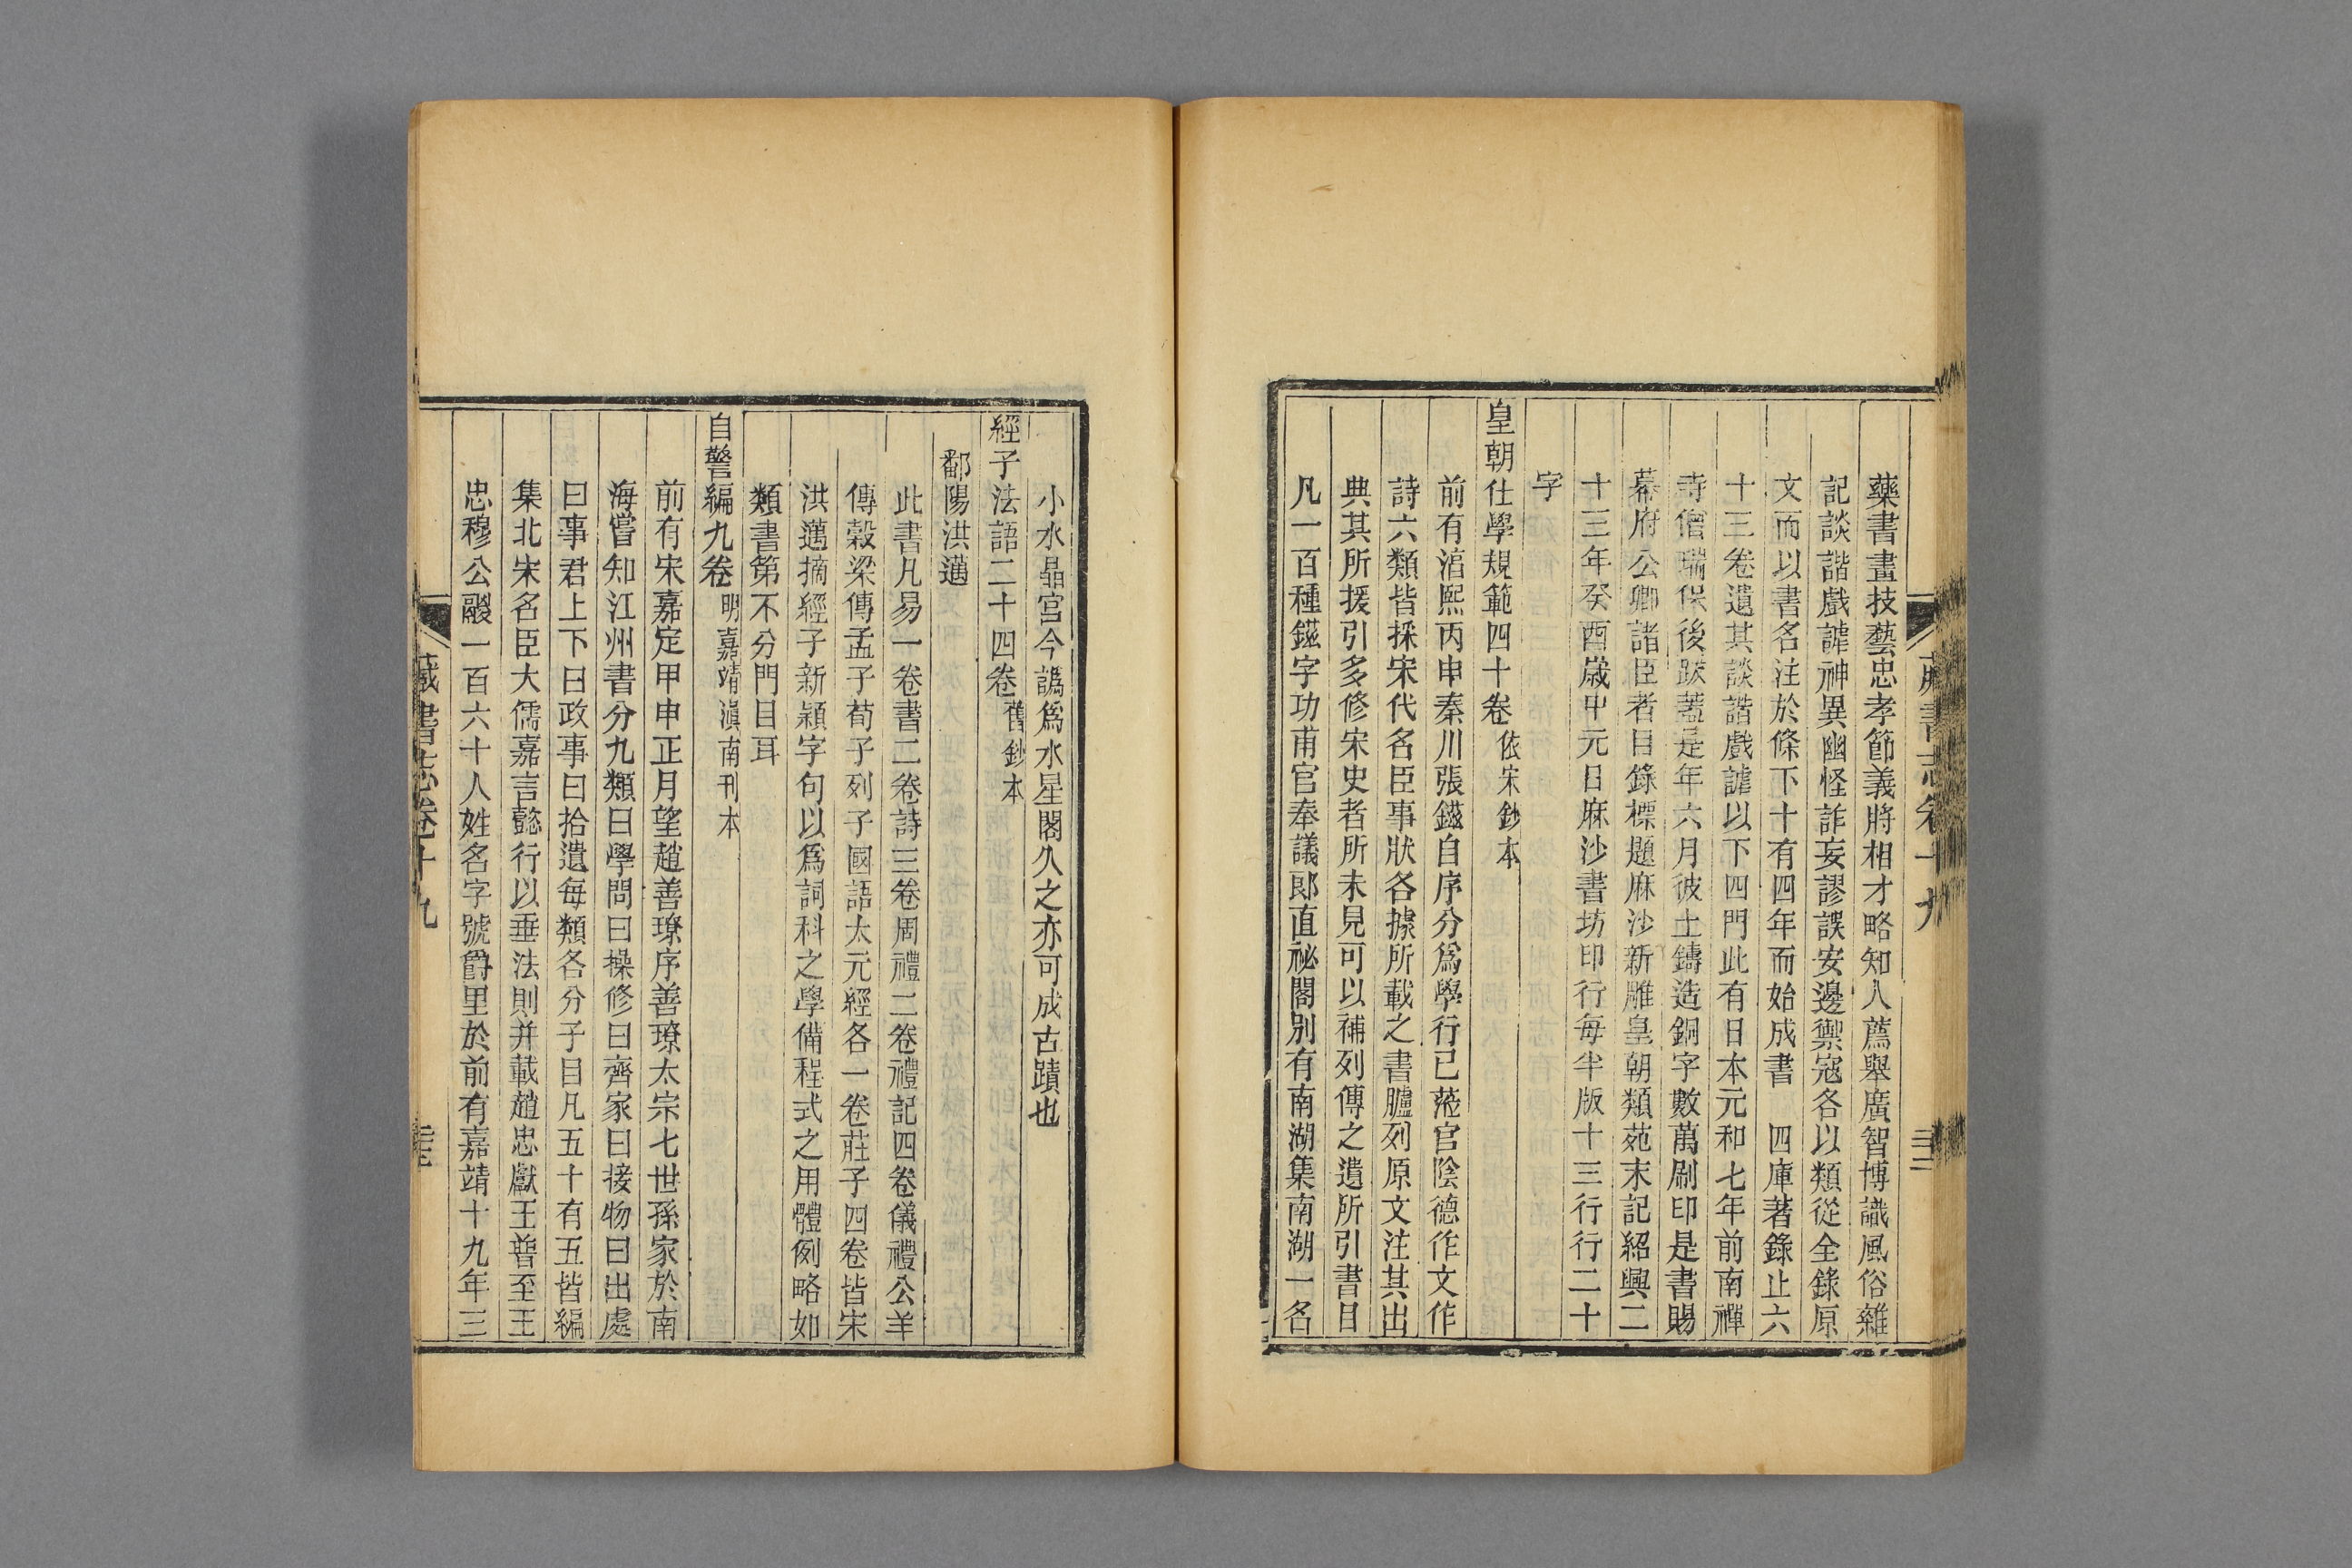 藥書畫技藝忠孝節義將相才略知人薦舉廣智博識風俗雜
記談諧戲謔神異幽怪詐妄謬誤安邊禦寇各以類從全錄原
文而以書名注於條下十有四年而始成書　四庫著錄止六
十三卷遺其談諧戲謔以下四門此有日本元和七年前南禪
寺僧瑞保後跋蓋是年六月彼土鑄造銅字數萬刷印是書賜
幕府公卿諸臣者目錄標題麻沙新雕皇朝類苑末記紹興二
十三年癸酉歲中元日麻沙書坊印行每半版十三行行二十
字
皇朝仕學規範四十卷依宋鈔本
前有淳熙丙申秦川張鎡自序分爲學行已蒞官陰德作文作
詩六類皆採宋代名臣事狀各據所載之書臚列原文注其出
典其所援引多修宋史者所未見可以補列傳之遺所引書目
凡一百種鎡字功甫官奉議郎直祕閣別有南湖集南湖一名
藏書志卷十九
小水晶宮今譌爲水星閣久之亦可成古蹟也
經子法語二十四卷舊鈔本
鄱陽洪邁
此書凡易一卷書二卷詩三卷周禮二卷禮記四卷儀禮公羊
傳穀梁傳孟子荀子列子國語太元經各一卷莊子四卷皆宋
洪邁摘經子新穎字句以爲詞科之學備程式之用體例略如
類書第不分門目耳
自警編九卷明嘉靖滇南刊本
前有宋嘉定甲申正月望趙善璙序善璙太宗七世孫家於南
海嘗知江州書分九類曰學問曰操修曰齊家曰接物曰出處
曰事君上下曰政事曰拾遺每類各分子目凡五十有五皆編
集北宋名臣大儒嘉言懿行以垂法則并載趙忠獻王普至王
忠穆公鬷一百六十人姓名字號爵里於前有嘉靖十九年三
藏書志卷十九